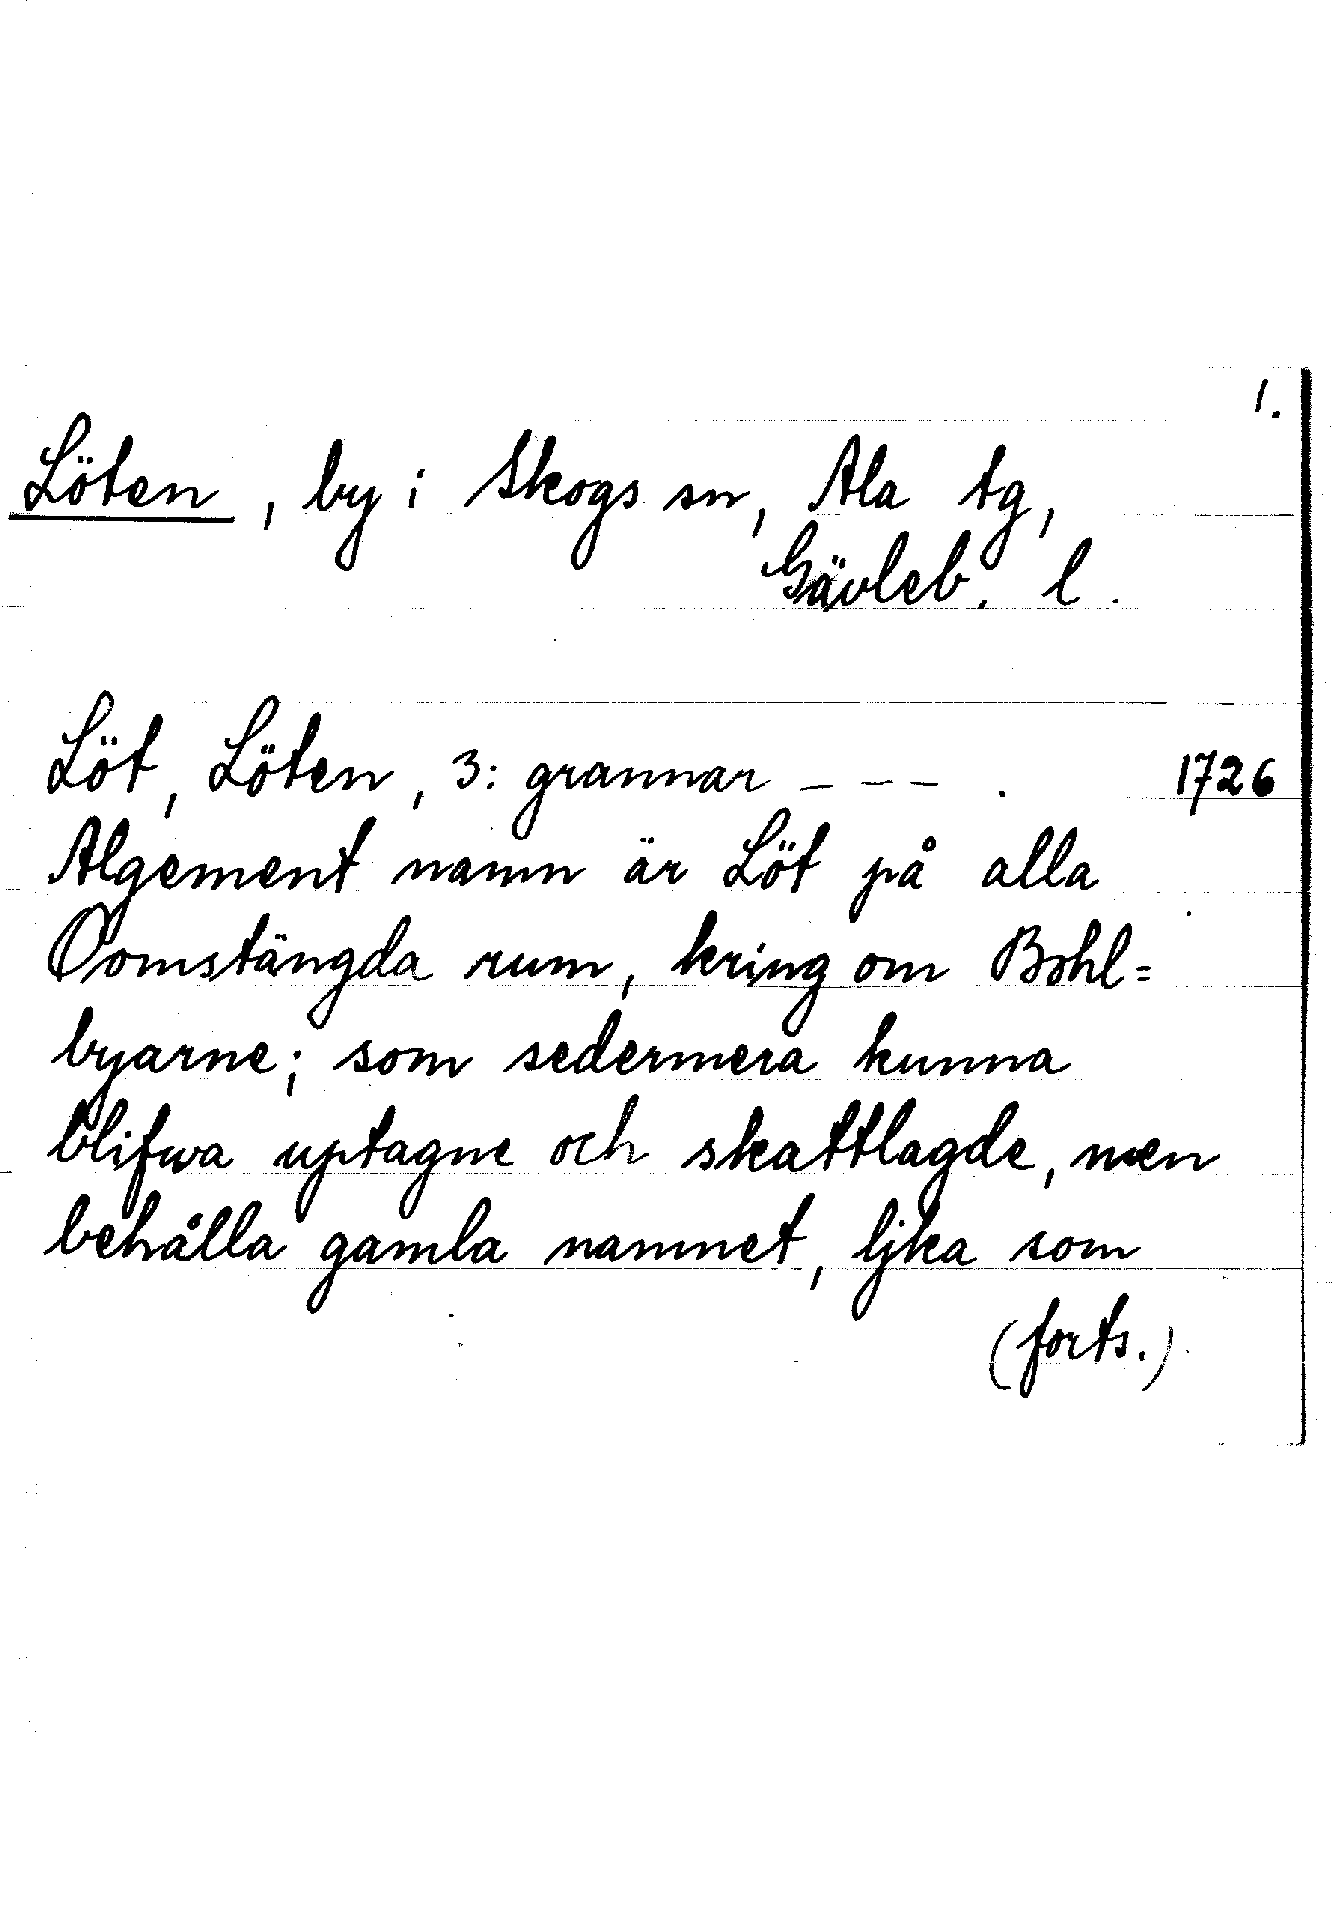 1.
Löten, by i Skogs sn, Ala tg,
Gävleb. l.
Löt, Löten, 3: grannar - - - . 1726
Algement namn är Löt på alla
Oomstängda rum, kring om Bohl=
byarne; som sedermera kunna
blifwa uptagne och skattlagde, men
behålla gamla namnet, ljka som
(forts.)